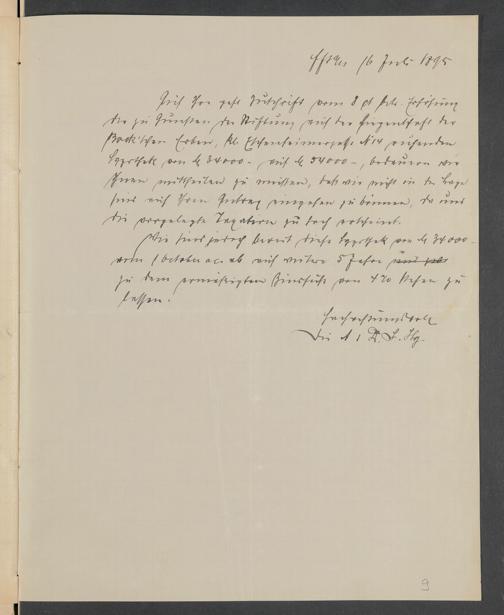 Ffm, 16 Juli 1895
Auf Ihre gefl. Zuschrift vom 8 pt btr. Erhöhung
der zu Gunsten der Stiftung auf der Liegenschaft der
Bock'schen Erben, Kl. Eschenheimergasse No 14 ruhenden
Hypothek von M 34000.– auf M 54000.–, bedauern wir
Ihnen mittheilen zu müssen, daß wir nicht in der Lage
sind auf Ihren Antrag eingehen zu können, da uns
die vorgelegte Taxation zu hoch erscheint.
Wir sind jedoch bereit diese Hypothek von M 34000.–
vom 1 October a.c. ab auf weitere 5 Jahre
zu dem ermäßigten Zinsfuße von 4 % stehen zu
lassen.
Hochachtungsvoll
Die A. d.
9